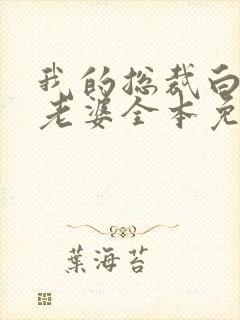 我的总裁白
老婆全本免
葉海苔